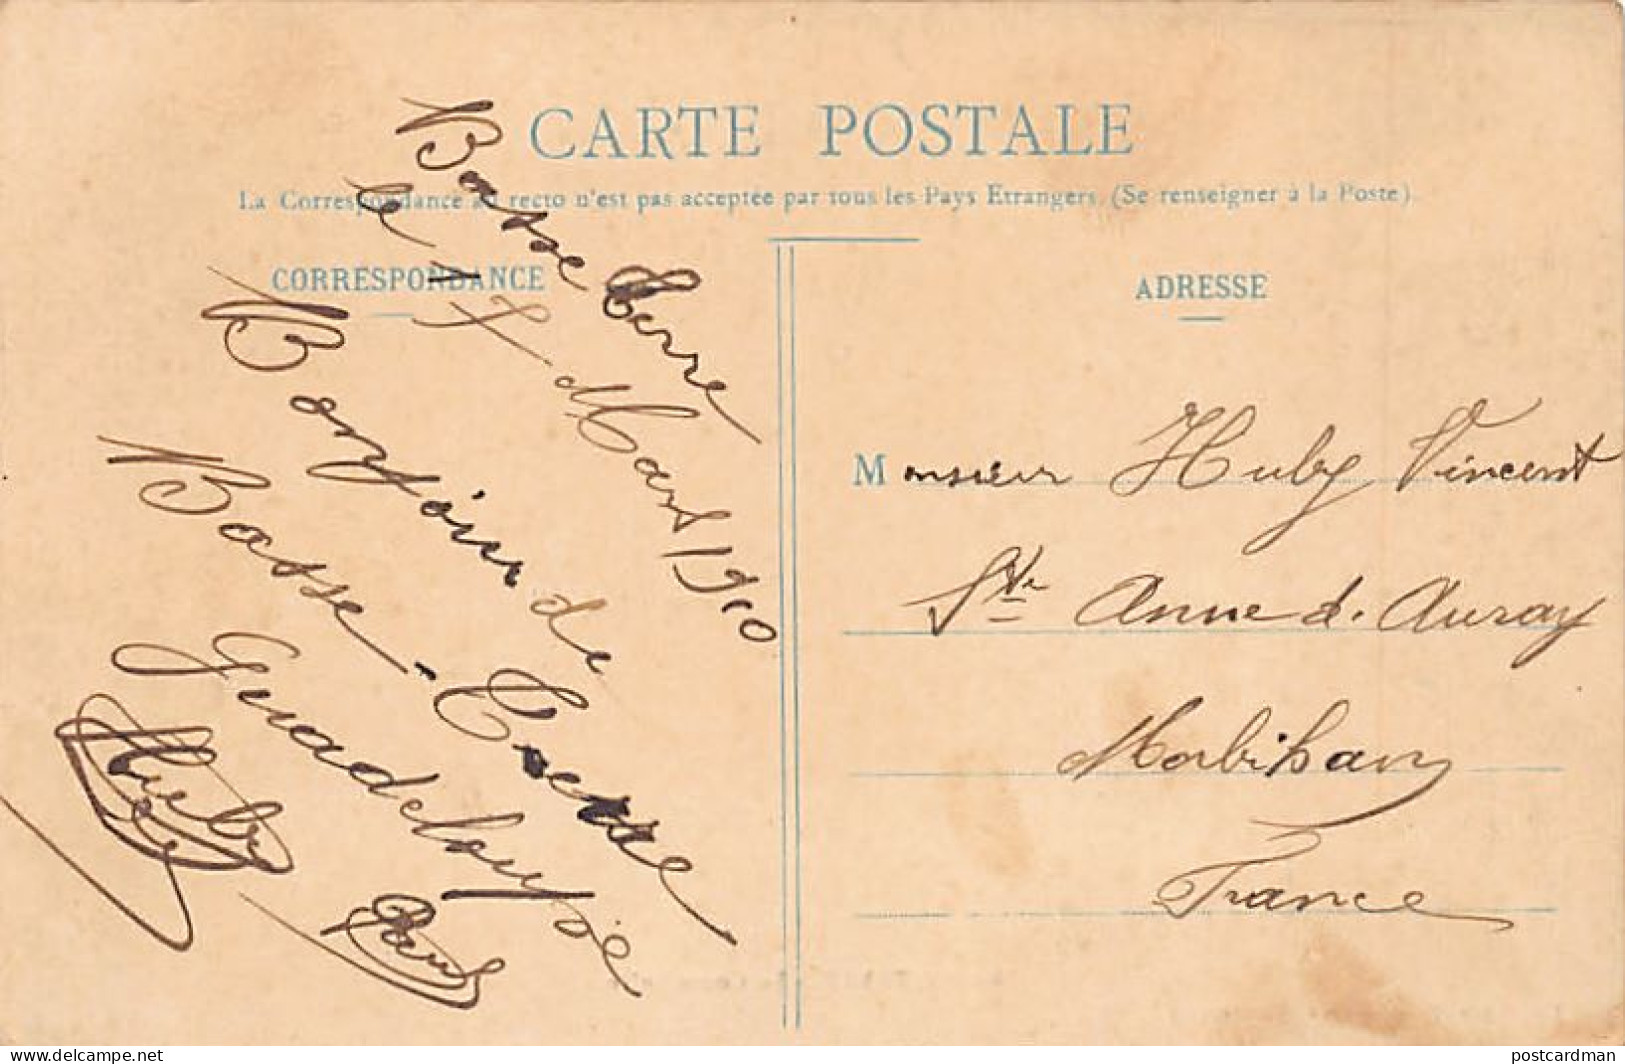 CARTE POSTALE
La Correspondance au recto n'est pas acceptée par tous les Pays Etrangers. (Se renseigner à la Poste).
CORRESPONDANCE
Basse Terre
le Mars 1910
Bonjour de
Basse-Terre
Guadeloupe
Huby
Paul
ADRESSE
Monsieur Huby Vincent
Ste Anne d'Auray
Morbihan
France
postcardman